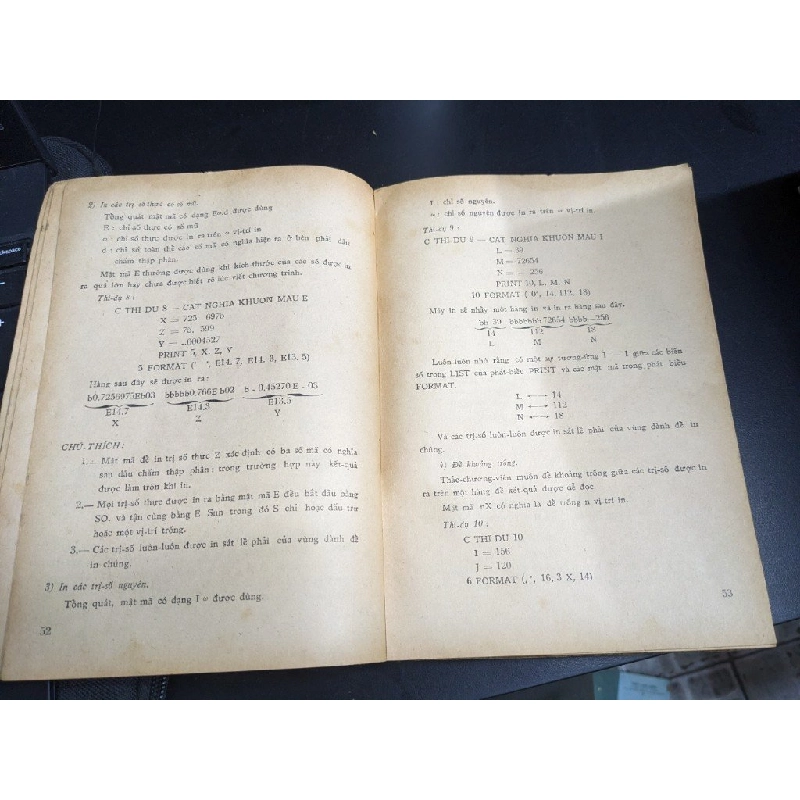 2) In các trị số thực có số mũ.
Tổng quát mật mã có dạng Ew.d được dùng
E : chỉ số thực có số mũ
w : chỉ số thực được in ra trên w vị-trí in
d : chỉ số toàn thể các số mã có nghĩa hiện ra ở bên phải dấu
chấm thập phân.
Mật mã E thường được dùng khi kích thước của các số được in
ra quá lớn hay chưa được hiểu rõ lúc viết chương trình.
Thí-dụ 8 :
C THI DU 8 — CAT NGHIA KHUON MAU E
X = 725 . 6975
Z = 76. 599
Y = .0004527
PRINT 5, X, Z, Y
5 FORMAT ( ' ', E14. 7, E14. 3, E13. 5)
Hàng sau đây sẽ được in ra :
b0.7256975Eb03 bbbbb0.766Eb02 b - 0.45270 E - 03
E14.7 E14.3 E13.5
X Z Y
CHÚ THÍCH :
1.— Mật mã để in trị số thực Z xác định có ba số mã có nghĩa
sau dấu chấm thập phân ; trong trường hợp này kết-quả
được làm tròn khi in.
2.— Mọi trị số thực được in ra bằng mật mã E đều bắt đầu bằng
SO. và tận cùng bằng E San trong đó S chỉ hoặc dấu trừ
hoặc một vị-trí trống.
3.— Các trị-số luôn-luôn được in sát lề phải của vùng đành để
in-chúng.
3) In các trị-số nguyên.
Tổng quát, mật mã có dạng I w được dùng.
52
I : chỉ số nguyên.
w : chỉ số nguyên được in ra trên w vị-trí in
Thí-dụ 9 :
C THI DU 9 — CAT NGHIA KHUON MAU I
L = 39
M = 72654
N = — 256
PRINT 10, L, M, N
10 FORMAT ( '0', I4, I12, I8)
Máy in sẽ nhảy một hàng in và in ra hàng sau đây.
bb 39 bbbbbbb 72654 bbbb - 256
I4 I12 I8
L M N
Luôn-luôn nhớ rằng có một sự tương-ứng 1 — 1 giữa các biến
số trong LIST của phát-biểu PRINT và các mật mã trong phát biểu
FORMAT.
L ⟷ I4
M ⟷ I12
N ⟷ I8
Và các trị-số luôn-luôn được in sát lề phải của vùng đành để in
chúng.
4) Để khoảng trống.
Thảo-chương-viên muốn để khoảng trống giữa các trị-số được in
ra trên một hàng để kết-quả được dễ đọc
Mật mã nX có nghĩa là để trống n vị trí in.
Thí-dụ 10 :
C THI DU 10
I = 156
J = 120
6 FORMAT (' ', I6, 3 X, I4)
53